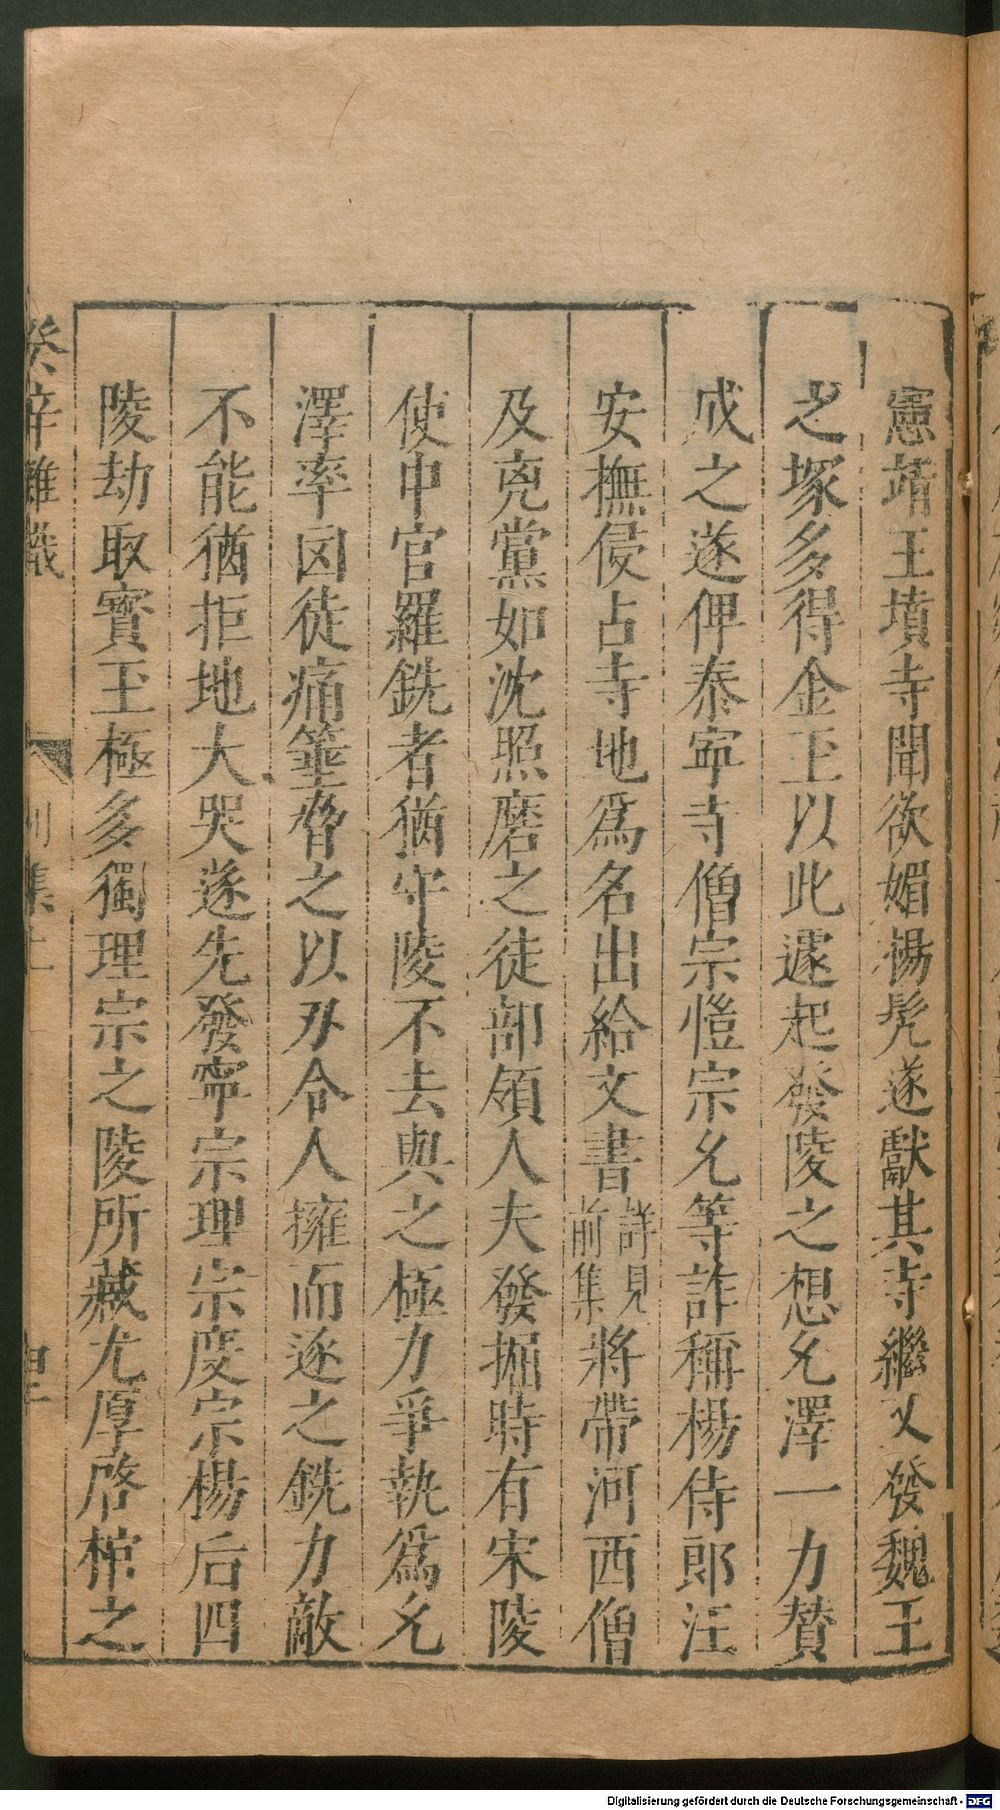 憲靖王墳寺聞欲媚楊髡遂獻其寺繼又發魏王
之塚多得金玉以此遽起發陵之想允澤一力贊
成之遂俾泰寕寺僧宗愷宗允等詐稱楊侍郎汪
安撫侵占寺地爲名出給文書詳見前集將帶河西僧
及兇黨如沈照磨之徒部領人夫發掘時有宋陵
使中官羅銑者猶守陵不去與之極力爭執爲允
澤率囟徒痛箠脅之以刃令人擁而逐之銑力敵
不能猶拒地大哭遂先發寧宗理宗度宗楊后四
陵劫取寳玉極多獨理宗之陵所藏尤厚啓棺之
癸辛雜識
別集上
Digitalisierung gefördert durch die Deutsche Forschungsgemeinschaft - DFG